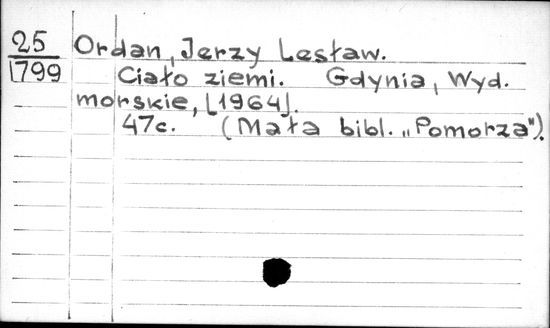 25
1799
Ordan, Jerzy Lesław.
Ciało ziemi. Gdynia, Wyd.
morskie, [1964].
47c. (Mała bibl. „Pomorza").